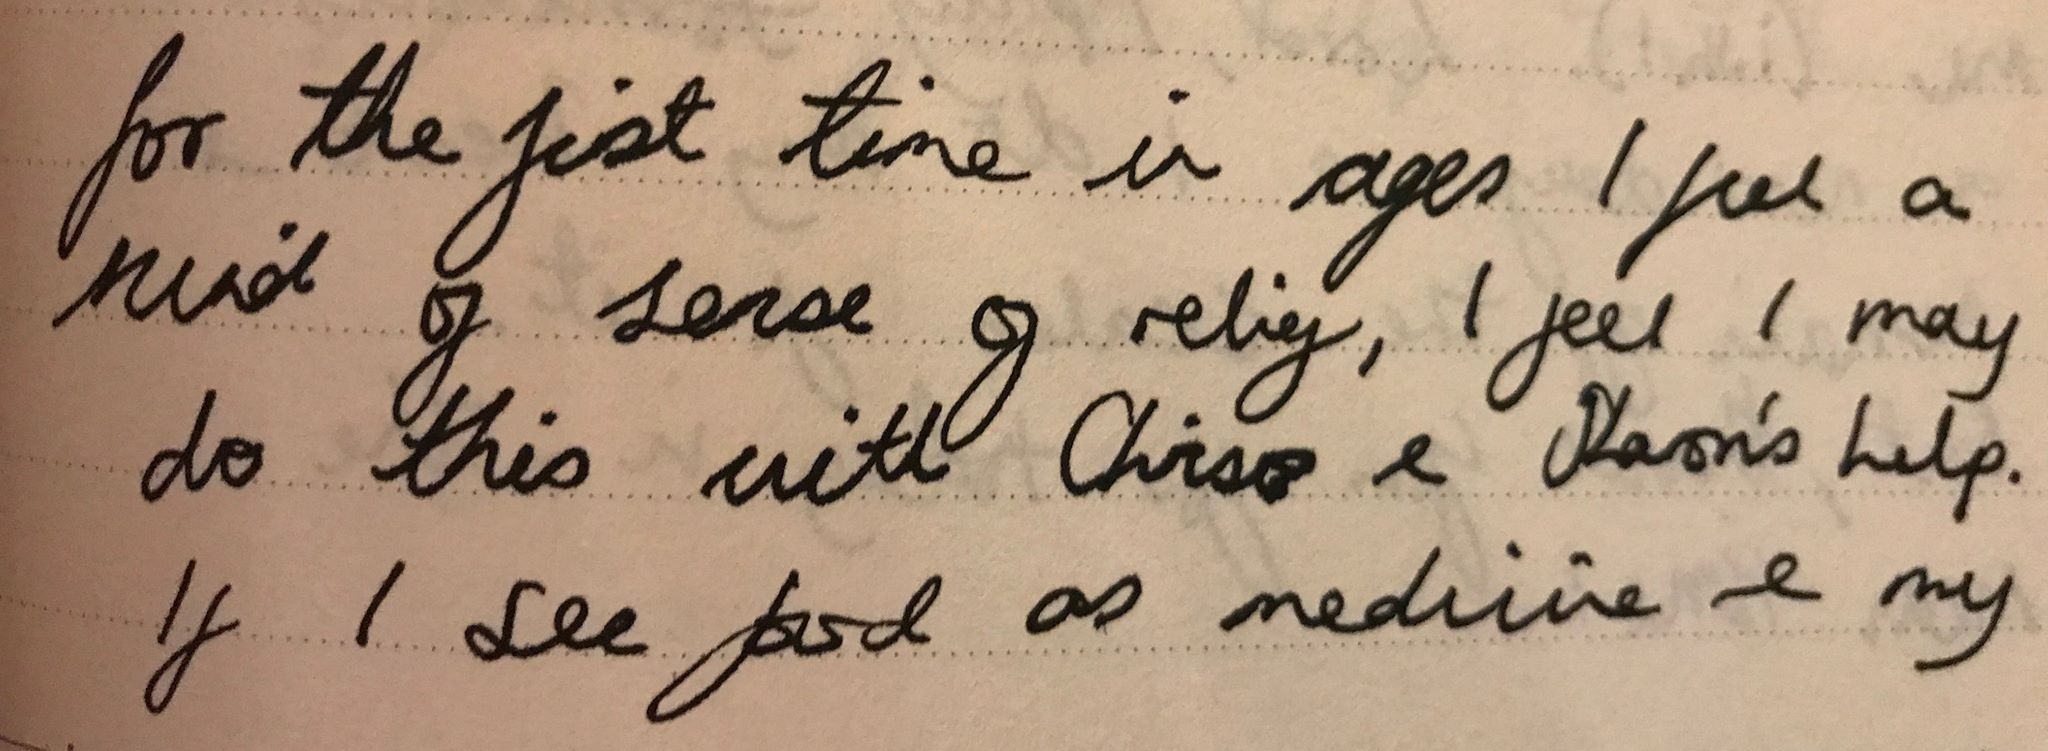 for the first time in ages I feel a
kind of sense of relief, I feel I may
do this with Chriss & help.
If I see food as medicine & my